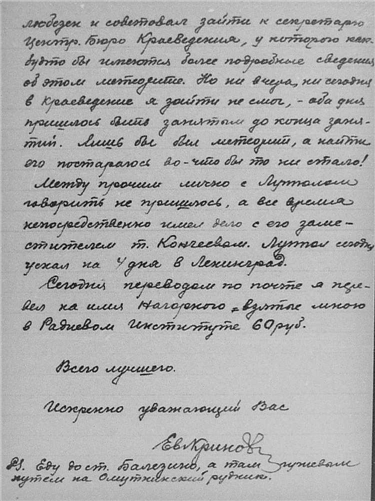 любезен и советовал зайти к секретарю
Центр. Бюро Краеведения, у которого как-
будто бы имеются более подробные сведения
об этом метеорите. Но ни вчера, ни сегодня
в Краеведение я зайти не смог, - оба дня
пришлось быть занятым до конца заня-
тий. Лишь бы был метеорит, а найти
его постараюсь во-что бы то ни стало!
Между прочим лично с Лупполом
говорить не пришлось, а все время
непосредственно имел дело с его заме-
стителем т. Кончеевом. Луппол
уехал на 4 дня в Ленинград.
Сегодня переводом по почте я пере-
вел на имя Нагорного взятые мною
в Радиевом Институте 60 руб.
Всего лучшего.
Искренно уважающий Вас
Ев Кринов
PS. Еду до ст. Балезино, а там гужевым
путем на Омутнинский рудник.